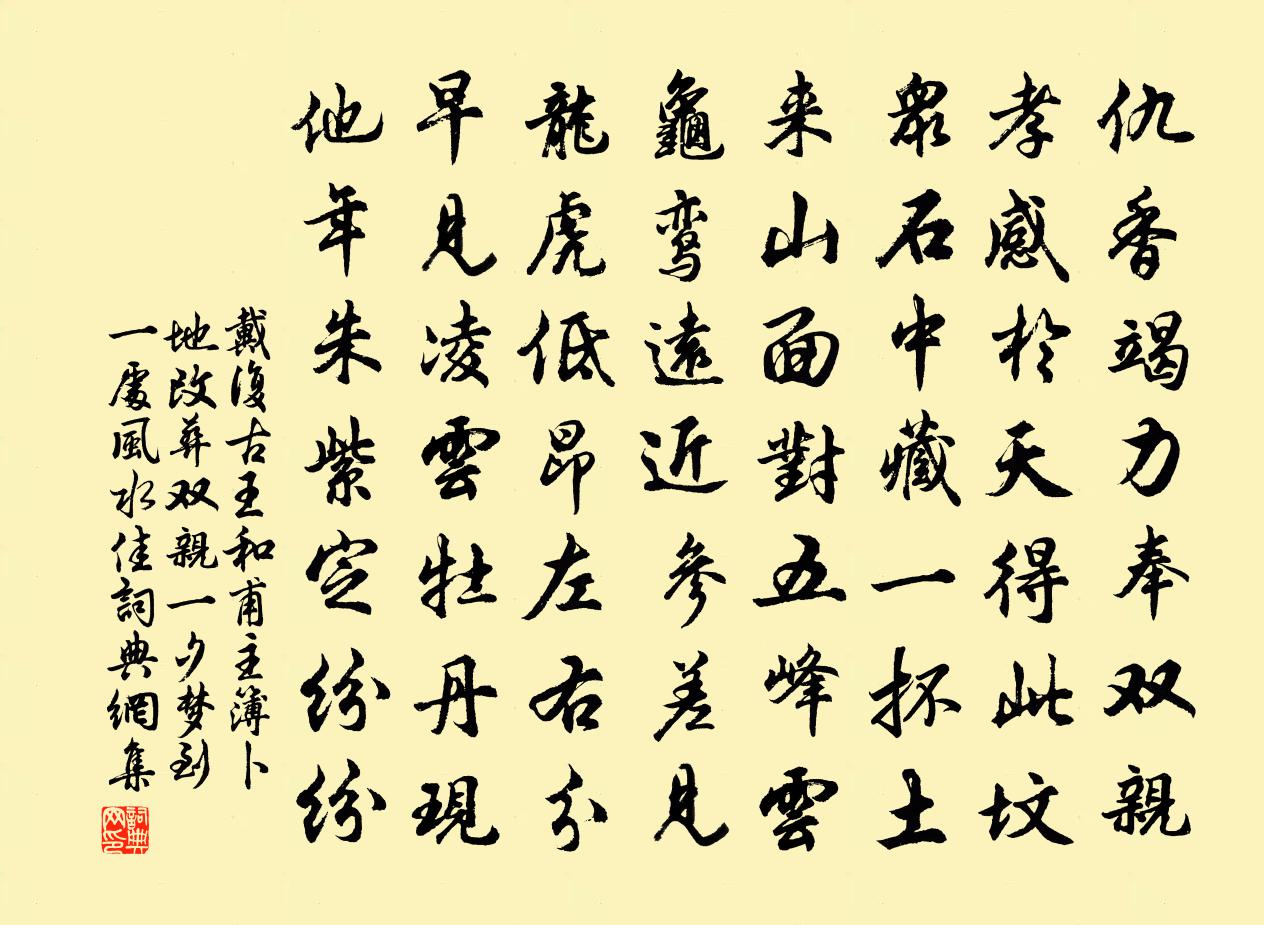 仇香竭力奉双親
孝感於天得此坟
衆石中藏一抔土
来山面對五峰雲
龜鸾遠近參差見
龍虎低昂左右分
早見凌雲牡丹現
他年朱紫定纷纷
戴復古王和甫主簿卜
地改葬双親一夕梦到
一處風水佳詞典網集
詞典网印